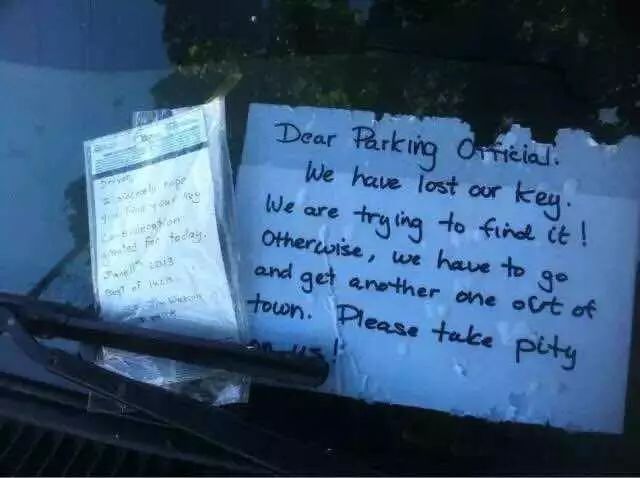 Driver,
I sincerely hope
you find your key
Consideration
granted for today.
2013
Best of luck
Jim
Dear Parking Official.
We have lost our key.
We are trying to find it!
Otherwise, we have to go
and get another one out of
town. Please take pity
on us!